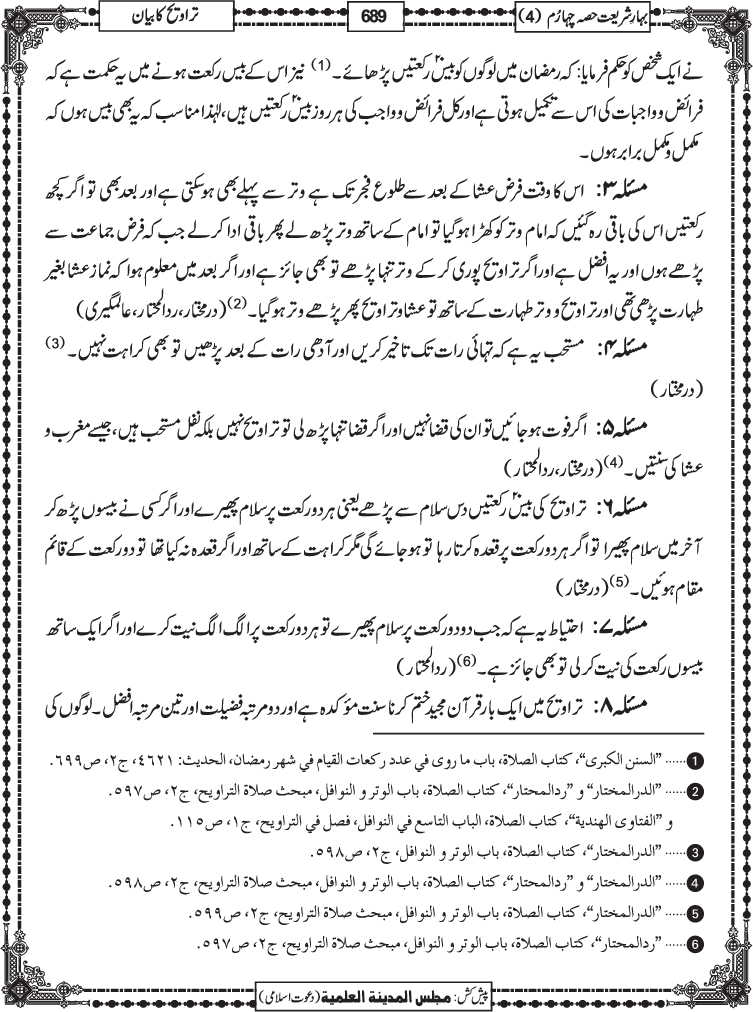 بہارِ شریعت حصہ چہارم (4)
689
تراویح کا بیان
نے ایک شخص کو حکم فرمایا: کہ رمضان میں لوگوں کو بیس۲۰ رکعتیں پڑھائے۔(1) نیز اس کے بیس رکعت ہونے میں یہ حکمت ہے کہ
فرائض و واجبات کی اس سے تکمیل ہوتی ہے اور کل فرائض و واجب کی ہر روز بیس۲۰ رکعتیں ہیں، لہٰذا مناسب کہ یہ بھی بیس ہوں کہ
مکمل و مکمل برابر ہوں۔
مسئلہ ۳: اس کا وقت فرض عشا کے بعد سے طلوع فجر تک ہے وتر سے پہلے بھی ہوسکتی ہے اور بعد بھی تو اگر کچھ
رکعتیں اس کی باقی رہ گئیں کہ امام وتر کو کھڑا ہوگیا تو امام کے ساتھ وتر پڑھ لے پھر باقی ادا کر لے جب کہ فرض جماعت سے
پڑھے ہوں اور یہ افضل ہے اور اگر تراویح پوری کر کے وتر تنہا پڑھے تو بھی جائز ہے اور اگر بعد میں معلوم ہوا کہ نماز عشا بغیر
طہارت پڑھی تھی اور تراویح و وتر طہارت کے ساتھ تو عشا و تراویح پھر پڑھے وتر ہوگیا۔(2) (درمختار، ردالمحتار، عالمگیری)
مسئلہ ۴: مستحب یہ ہے کہ تہائی رات تک تاخیر کریں اور آدھی رات کے بعد پڑھیں تو بھی کراہت نہیں۔(3)
(درمختار)
مسئلہ ۵: اگر فوت ہوجائیں تو ان کی قضا نہیں اور اگر قضا تنہا پڑھ لی تو تراویح نہیں بلکہ نفل مستحب ہیں، جیسے مغرب و
عشا کی سنتیں۔(4) (درمختار، ردالمحتار)
مسئلہ ۶: تراویح کی بیس۲۰ رکعتیں دس سلام سے پڑھے یعنی ہر دو رکعت پر سلام پھیرے اور اگر کسی نے بیسوں پڑھ کر
آخر میں سلام پھیرا تو اگر ہر دو رکعت پر قعدہ کرتا رہا تو ہو جائے گی مگر کراہت کے ساتھ اور اگر قعدہ نہ کیا تھا تو دو رکعت کے قائم
مقام ہوئیں۔(5) (درمختار)
مسئلہ ۷: احتیاط یہ ہے کہ جب دو دو رکعت پر سلام پھیرے تو ہر دو رکعت پر الگ الگ نیت کرے اور اگر ایک ساتھ
بیسوں رکعت کی نیت کر لی تو بھی جائز ہے۔(6) (ردالمحتار)
مسئلہ ۸: تراویح میں ایک بار قرآن مجید ختم کرنا سنت مؤکدہ ہے اور دو مرتبہ فضیلت اور تین مرتبہ افضل۔ لوگوں کی
1 ...... "السنن الکبری"، کتاب الصلاة، باب ما روی في عدد رکعات القیام في شهر رمضان، الحدیث: ٤٦٢١، ج٢، ص٦٩٩.
2 ...... "الدرالمختار" و "ردالمحتار"، کتاب الصلاة، باب الوتر و النوافل، مبحث صلاة التراویح، ج٢، ص٥٩٧.
و "الفتاوی الهندیة"، کتاب الصلاة، الباب التاسع في النوافل، فصل في التراویح، ج١، ص١١٥.
3 ...... "الدرالمختار"، کتاب الصلاة، باب الوتر و النوافل، ج٢، ص٥٩٨.
4 ...... "الدرالمختار" و "ردالمحتار"، کتاب الصلاة، باب الوتر و النوافل، مبحث صلاة التراویح، ج٢، ص٥٩٨.
5 ...... "الدرالمختار"، کتاب الصلاة، باب الوتر و النوافل، مبحث صلاة التراویح، ج٢، ص٥٩٩.
6 ...... "ردالمحتار"، کتاب الصلاة، باب الوتر و النوافل، مبحث صلاة التراویح، ج٢، ص٥٩٧.
پیش کش: مجلس المدینۃ العلمیۃ (دعوت اسلامی)